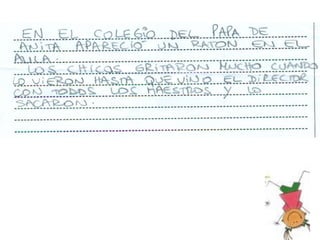 EN EL COLEGIO DEL PAPA DE
ANITA APARECIO UN RATON EN EL
AULA.
LOS CHICOS GRITARON MUCHO CUANDO
LO VIERON HASTA QUE VINO EL DIRECTOR
CON TODOS LOS MAESTROS Y LO
SACARON.